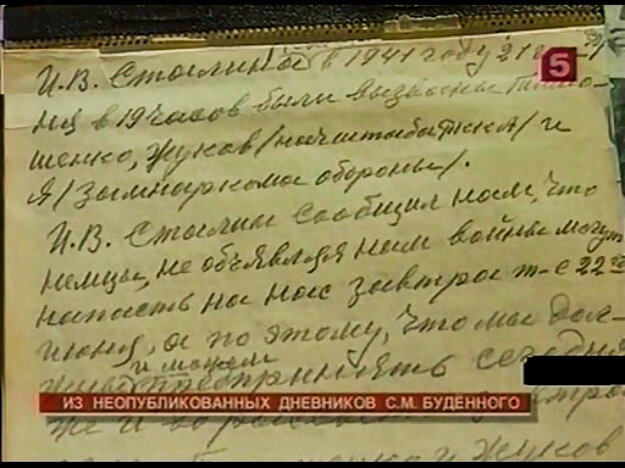 И.В. Сталина в 1941 году 21 июня
в 19 часов были вызваны Тимо-
шенко, Жуков /нач штаба РККА/ и
я /замнаркома обороны/.
И.В. Сталин сообщил нам, что
немцы, не объявляя нам войны могут
напасть на нас завтра т-е 22го
июня, а по этому, что мы дол-
и можем
жны предпринять сегодня
ИЗ НЕОПУБЛИКОВАННЫХ ДНЕВНИКОВ С.М. БУДЁННОГО
же и до рассвета завтра
и Жуков
5